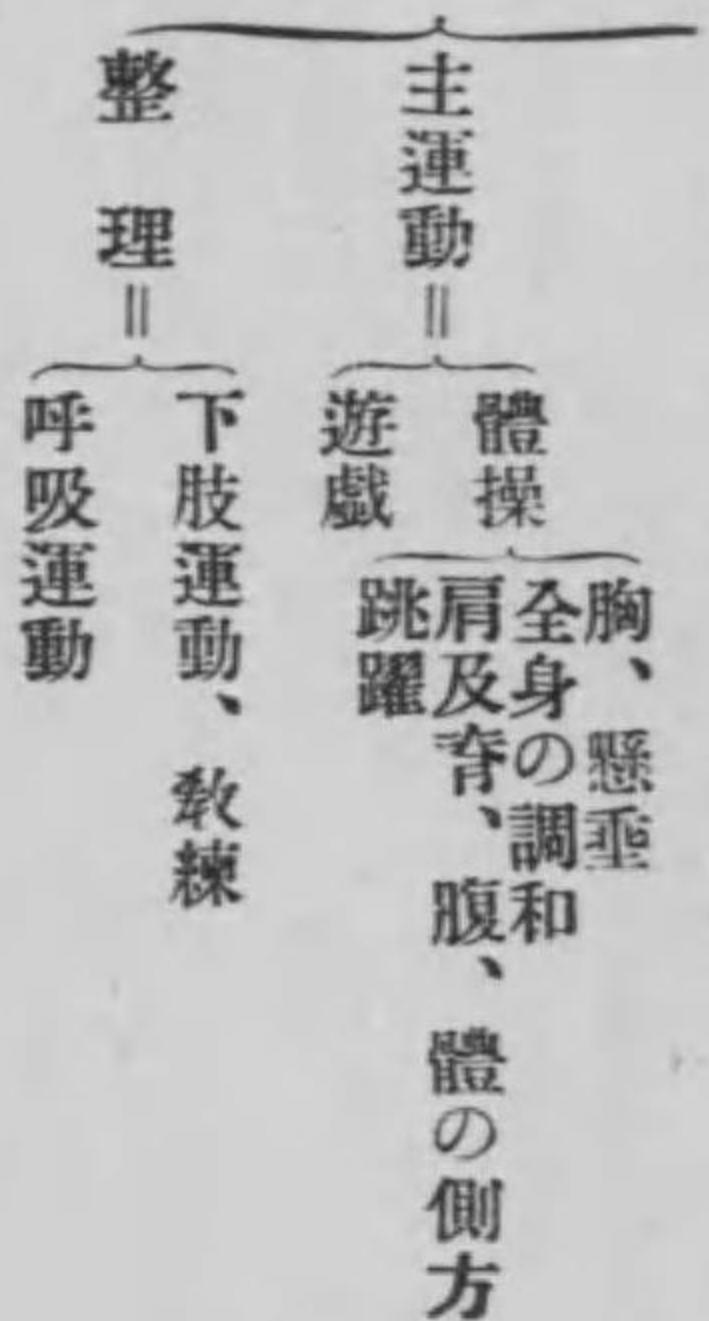 主運動＝
體操
胸、懸垂
全身の調和
肩及脊、腹、體の側方
跳躍
遊戯
整理＝
下肢運動、敎練
呼吸運動